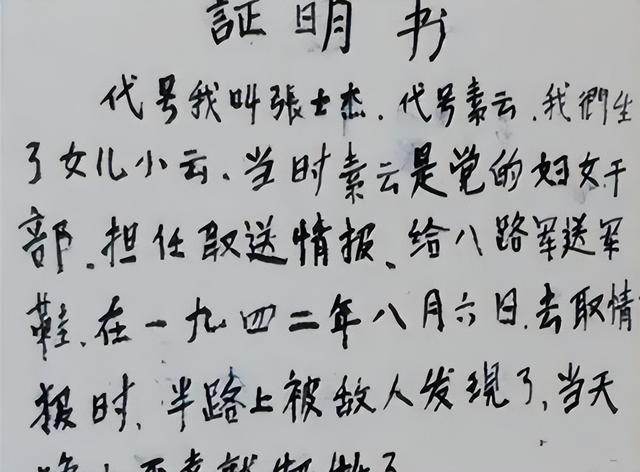 証明书
代号我叫張士杰.代号素云.我們生
了女儿小云、当时素云是党的妇女干
部、担任取送情报、给八路军送军
鞋、在一九四二年八月六日.去取情
报时,半路上被敌人发現了,当天